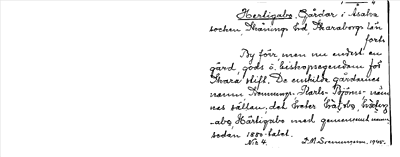 Hertigabo, Gårdar i Åsaka
socken, Skånings hd, Skaraborgs län
forts
By förr, men nu endast en
gård, gods o. biskopsegendom för
Skara stift. De enskilde gårdarnes
namn Storms- Karls- Björns- näm-
nes sällan; det heter
Hertigabo med gemensamt namn
sedan 1850-talet.
Nr. 4. 1945.